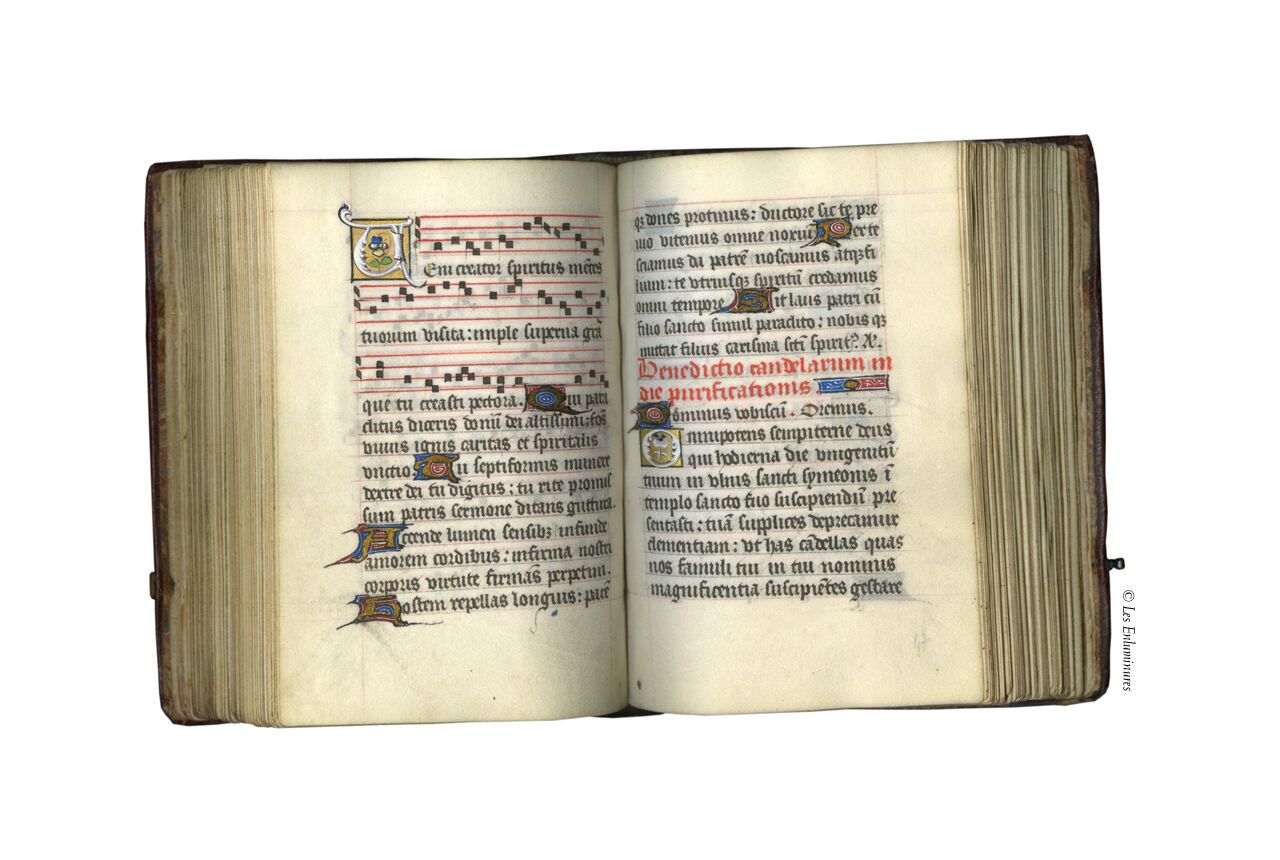 Veni creator spiritus mētes
tuorum visita: imple superna grā
que tu creasti pectora. Qui para
clitus diceris donū dei altissimi: fōs
vivus ignis caritas et spiritalis
vnctio Tu septiformis munere
dextre dei tu digitus: tu rite promis
sum patris sermone ditans guttura.
Accende lumen sensibꝫ infunde
amorem cordibus: infirma nostri
corporis virtute firmās perpetim.
Hostem repellas longius: pacē
qꝫ dones protinus: ductore sic te pre
uio vitemus omne noxiū Per te
sciamus da patrē noscamus atqꝫ fi
lium: te vtriusqꝫ spiritū credamus
omni tempore Sit laus patri cū
filio sancto simul paraclito: nobis qꝫ
mittat filius carisma sctī spirit⁹.
Benedictio candelarum in
die purificationis
Dominus vobiscū. Oremus.
Omnipotens sempiterne deus
qui hodierna die vnigenitū
tuum in vlnis sancti symeonis ī
templo sancto tuo suscipiendū pre
sentasti: tuā supplices deprecamur
clementiam: vt has cādellas quas
nos famuli tui in tui nominis
magnificentia suscipiētes gestare
47
© Les Enluminures